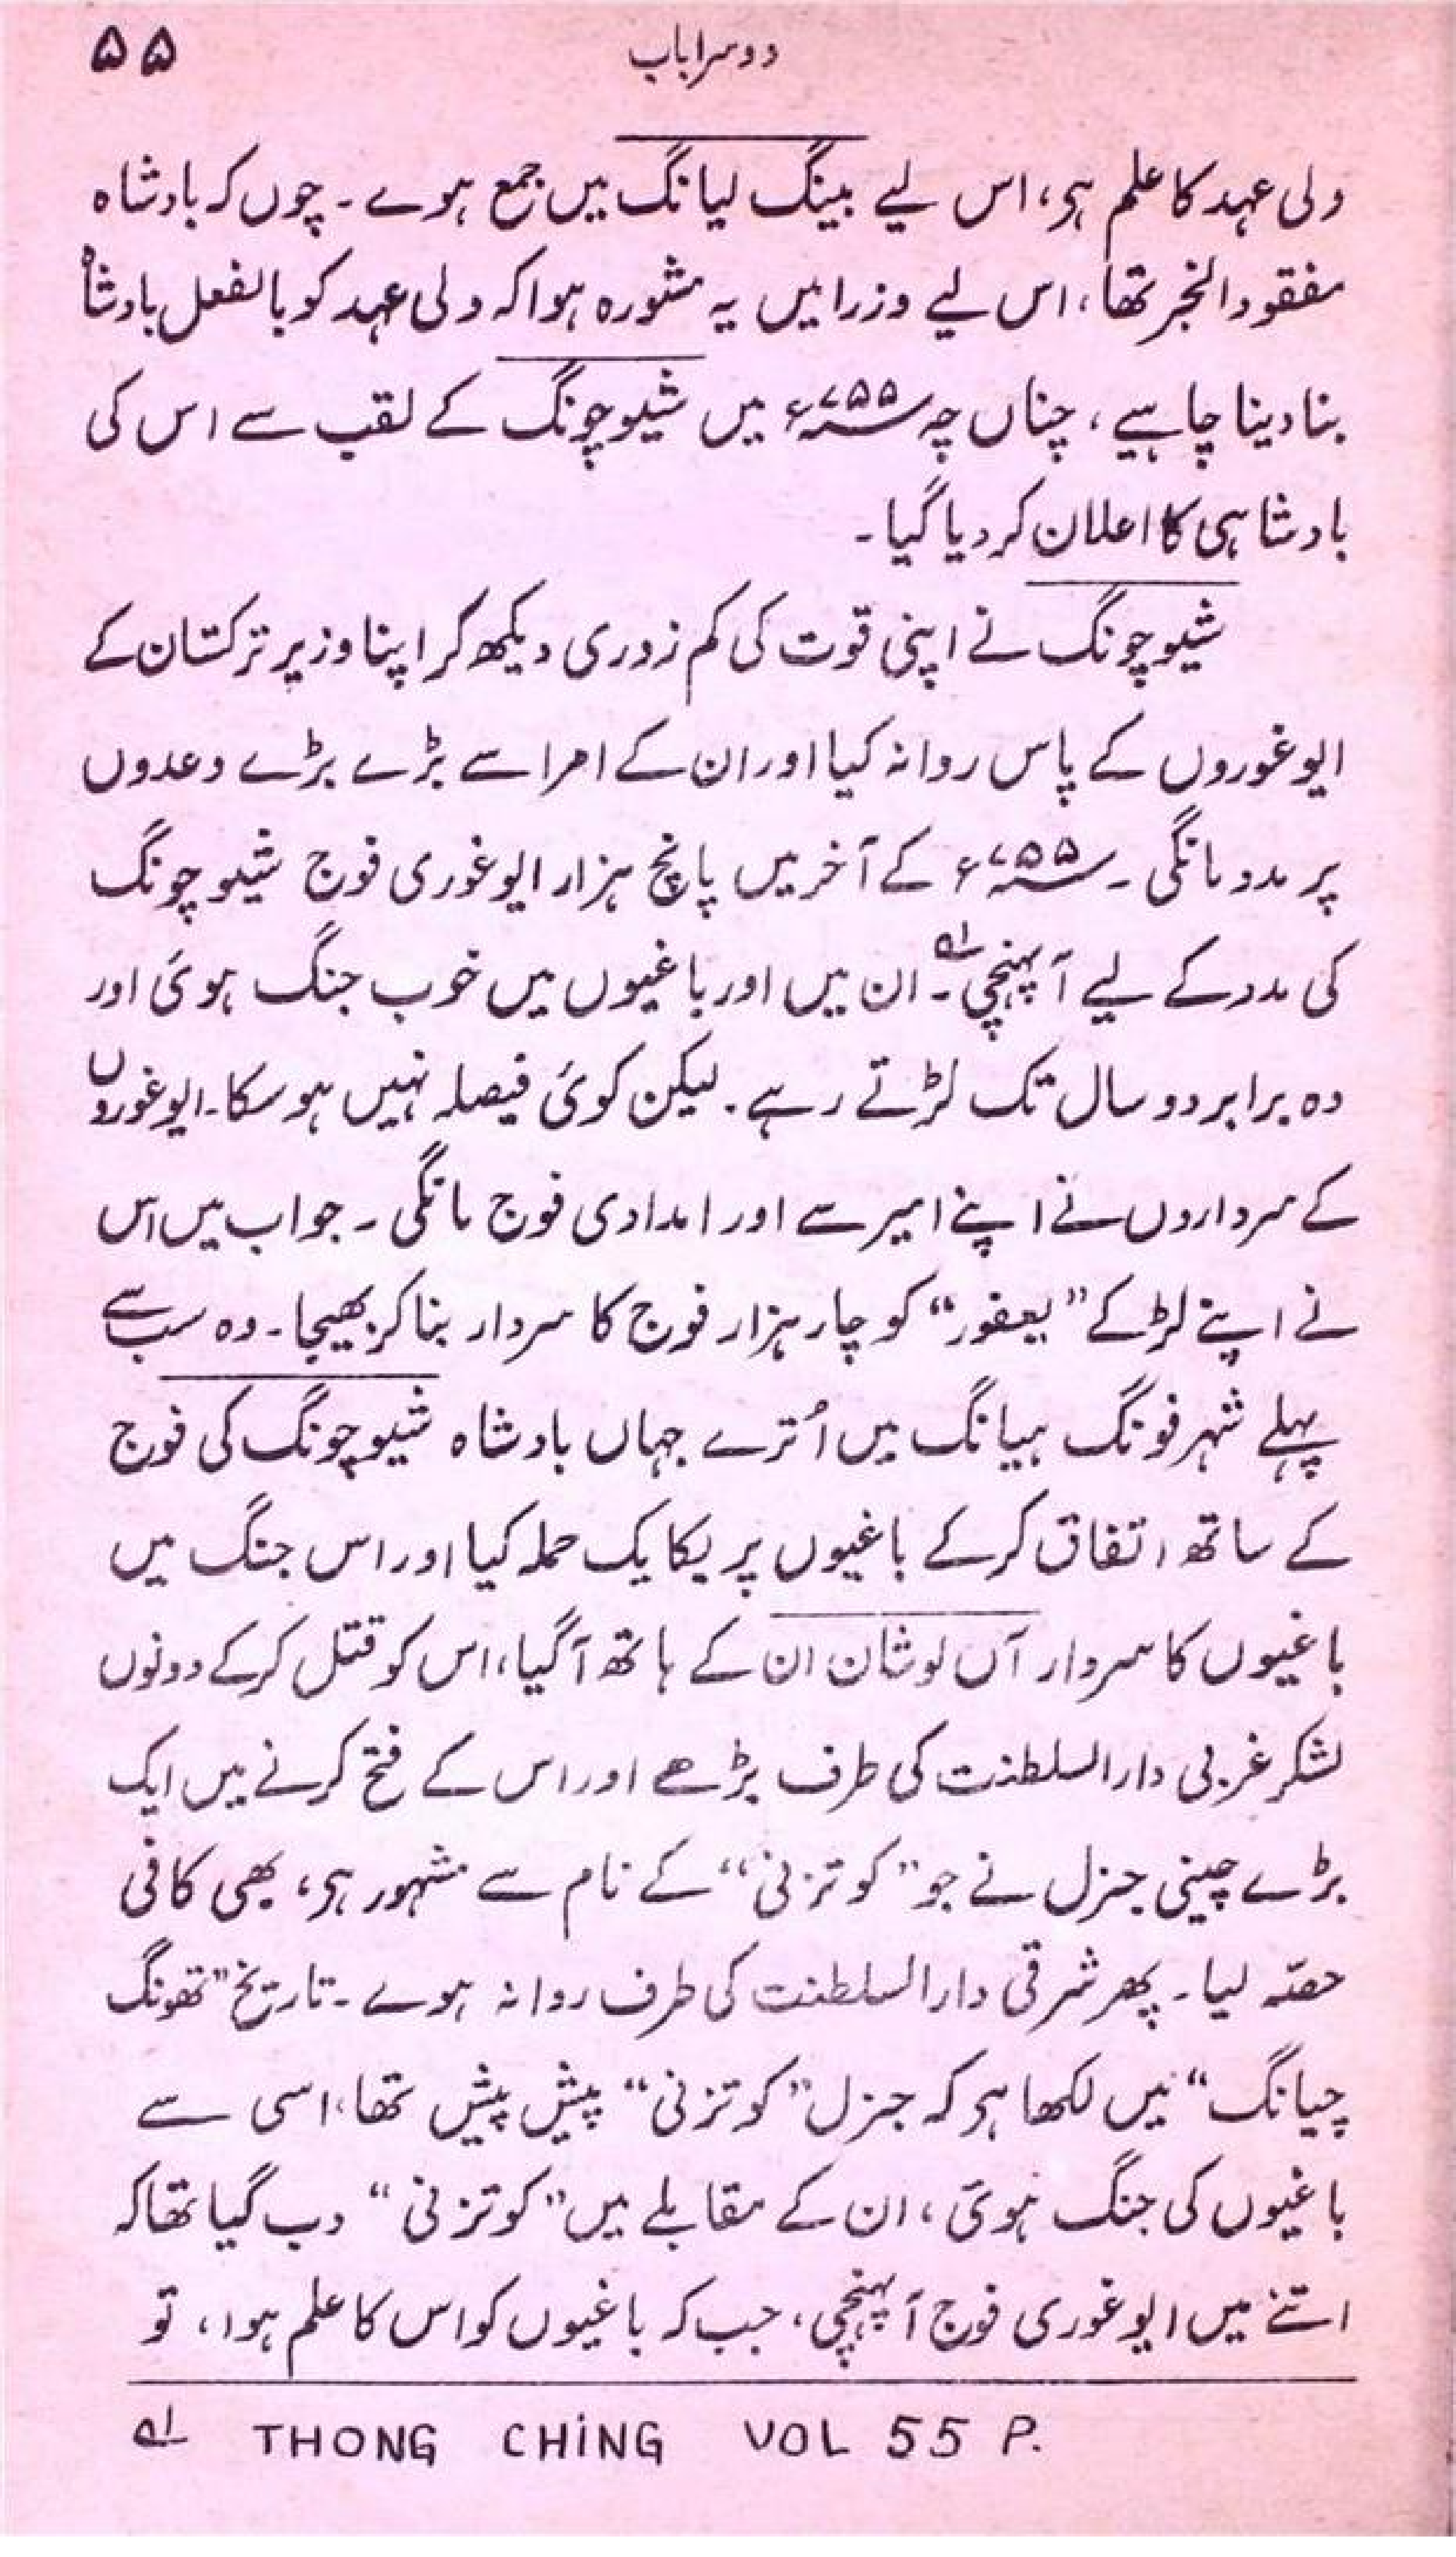 دوسرا باب ۵۵
ولی عہد کا علم ہی، اس لیے بینگ لیانگ میں جمع ہوے ۔ چوں کہ بادشاہ
مفقود الخبر تھا، اس لیے وزرا میں یہ مشورہ ہوا کہ ولی عہد کو بالفعل بادشاہ
بنا دینا چاہیے ، چناں چہ ۷۵۵؁ء میں شیوچونگ کے لقب سے اس کی
بادشاہی کا اعلان کر دیا گیا ۔
شیوچونگ نے اپنی قوت کی کم زوری دیکھ کر اپنا وزیر ترکستان کے
ایوغوروں کے پاس روانہ کیا اور ان کے امرا سے بڑے بڑے وعدوں
پر مدد مانگی ۔ ۷۵۵؁ء کے آخر میں پانچ ہزار ایوغوری فوج شیوچونگ
کی مدد کے لیے آ پہنچی ۱؎ ۔ ان میں اور باغیوں میں خوب جنگ ہوئی اور
وہ برابر دو سال تک لڑتے رہے ۔ لیکن کوئی فیصلہ نہیں ہو سکا ۔ ایوغوروں
کے سرداروں نے اپنے امیر سے اور امدادی فوج مانگی ۔ جواب میں اس
نے اپنے لڑکے ”یعفور“ کو چار ہزار فوج کا سردار بنا کر بھیجا ۔ وہ سب سے
پہلے شہر فونگ ہیانگ میں اُترے جہاں بادشاہ شیوچونگ کی فوج
کے ساتھ اتفاق کر کے باغیوں پر یکایک حملہ کیا اور اس جنگ میں
باغیوں کا سردار آن لوشان ان کے ہاتھ آگیا، اس کو قتل کرکے دونوں
لشکر غربی دارالسلطنت کی طرف بڑھے اور اس کے فتح کرنے میں ایک
بڑے چینی جنرل نے جو ”کوتزئی“ کے نام سے مشہور ہی، بھی کافی
حصّہ لیا ۔ پھر شرقی دارالسلطنت کی طرف روانہ ہوے ۔ تاریخ ”تھونگ
چیانگ“ میں لکھا ہی کہ جنرل ”کوتزئی“ پیش پیش تھا، اسی سے
باغیوں کی جنگ ہوئی، ان کے مقابلے میں ”کوتزئی“ دب گیا تھا کہ
اتنے میں ایوغوری فوج آ پہنچی، جب کہ باغیوں کو اس کا علم ہوا، تو
۱؎ THONG CHiNG VOL 55 P.